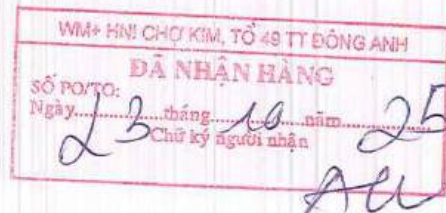 WM+ HNI CHỢ KIM, TỔ 49 TT ĐÔNG ANH
ĐÃ NHẬN HÀNG
SỐ PO/TO:
Ngày 23 tháng 10 năm 25
Chữ ký người nhận